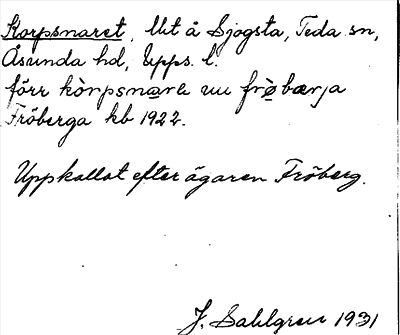 Korpsnaret, lht å Sjögsta, Teda sn,
Åsunda hd, Upps. l.
förr kòrpsnarə nu frö̀bærja
Fröberga kb 1922.
Uppkallat efter ägaren Fröberg.
J. Sahlgren 1931